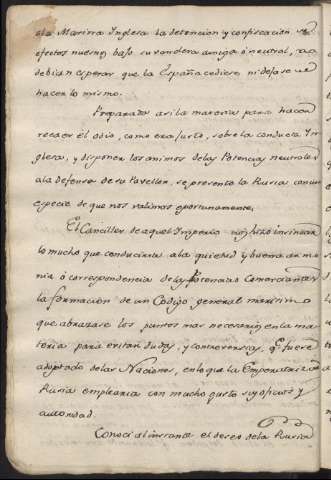 a la Marina Inglesa la detencion y confiscacion de
efectos nuestros bajo su vandera amiga ò neutral, no
debian esperar que la España cediese, ni dejase de
hacer lo mismo.
Preparada asi la materia para hacer
recaer el odio, como era justo, sobre la conducta In-
glesa, y disponer los animos de las Potencias neutrales
a la defensa de su Pavellon, se presentò la Rusia con una
especie de que nos valimos oportunamente.
El Canciller de aquel Imperio nos hizo insinuar
lo mucho que conduciria a la quietud y buena armo-
nia ò correspondencia de las Potencias Comerciantes
la formacion de un Codigo general maritimo
que abrazase los puntos mas necesarios en la ma-
teria para evitar dudas, y controversias, qe. fuese
adoptado de las Naciones, en lo que la Emperatriz de
Rusia emplearia con mucho gusto sus oficios y
autoridad.
Conoci al instante el deseo de la Rusia